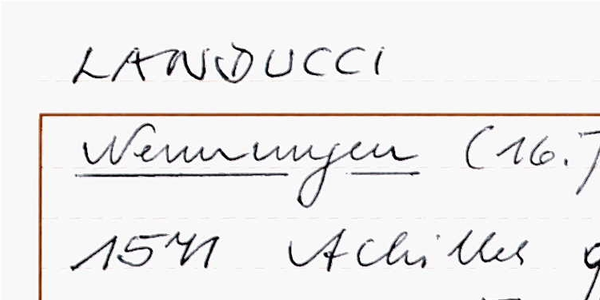 LANDUCCI
Nennungen (16.
1541 Achilles